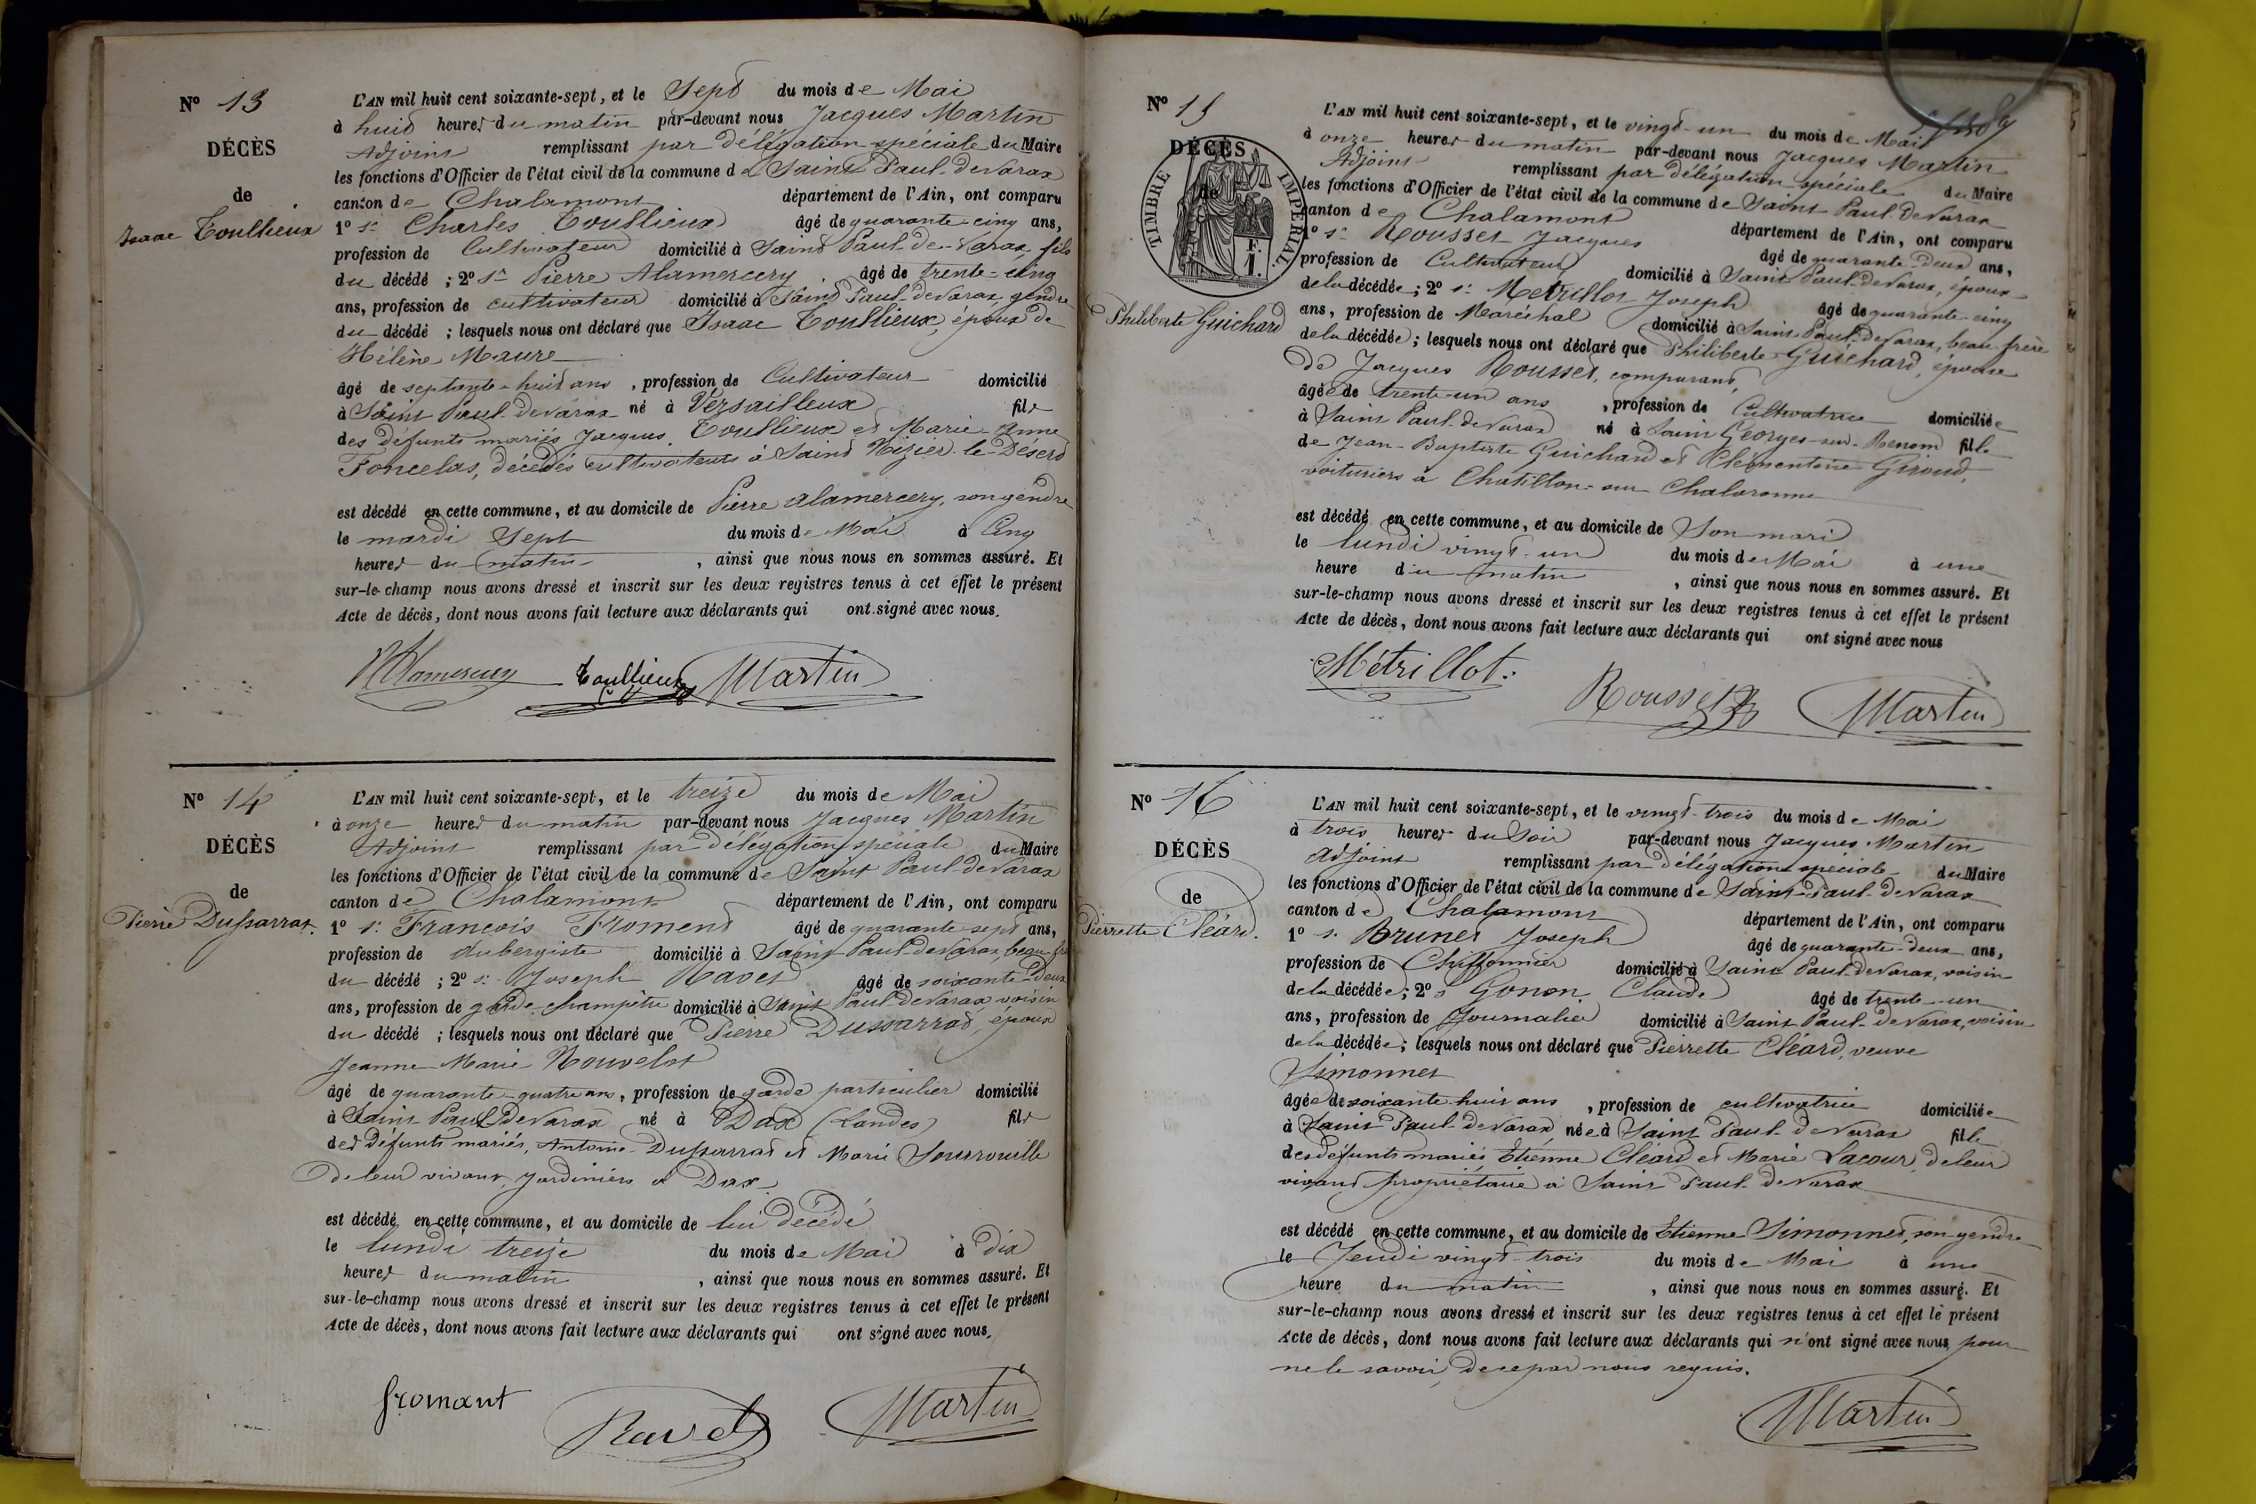 N° 13
DÉCÈS
de
Isaac Toullieux
L'AN mil huit cent soixante-sept, et le Sept du mois de Mai
à huit heures du matin par-devant nous Jacques Martin
Adjoint remplissant par délégation spéciale du Maire
les fonctions d'Officier de l'état civil de la commune de Saint Paul-de Varax
canton de Chalamont département de l'Ain, ont comparu
1° sr Charles Toullieux âgé de quarante-cinq ans,
profession de Cultivateur domicilié à Saint Paul-de-Varax, fils
du décédé ; 2° sr Pierre Alamercery âgé de trente-cinq
ans, profession de cultivateur domicilié à Saint Paul-de Varax, gendre
du décédé ; lesquels nous ont déclaré que Isaac Toullieux, époux de
Hélène Maure
âgé de septante-huit ans, profession de Cultivateur domicilié
à Saint Paul-de Varax né à Versailleux fils
des défunts mariés Jacques Toullieux et Marie-Anne
Foncelas, décédés cultivateurs à Saint Nizier-le-Désert
est décédé en cette commune, et au domicile de Pierre Alamercery, son gendre
le mardi Sept du mois de Mai à Cinq
heures du matin, ainsi que nous nous en sommes assuré. Et
sur-le-champ nous avons dressé et inscrit sur les deux registres tenus à cet effet le présent
Acte de décès, dont nous avons fait lecture aux déclarants qui ont signé avec nous.
Alamercery Toullieux Martin
N° 14
DÉCÈS
de
Pierre Dussarrat.
L'AN mil huit cent soixante-sept, et le treize du mois de Mai
à onze heures du matin par-devant nous Jacques Martin
Adjoint remplissant par délégation spéciale du Maire
les fonctions d'Officier de l'état civil de la commune de Saint Paul-de Varax
canton de Chalamont département de l'Ain, ont comparu
1° sr François Froment âgé de quarante sept ans,
profession de Aubergiste domicilié à Saint Paul-de Varax, beau-
du décédé ; 2° sr Joseph Ravet âgé de soixante-deux
ans, profession de garde-champêtre domicilié à Saint Paul-de Varax, voisin
du décédé ; lesquels nous ont déclaré que Pierre Dussarrat, époux
Jeanne Marie Nouvelot
âgé de quarante-quatre ans, profession de garde particulier domicilié
à Saint Paul de Varax né à Dax (Landes) fils
des défunts mariés, Antoine Dussarrat et Marie Sourrouille
de leur vivant, jardiniers à Dax
est décédé en cette commune, et au domicile de lui décédé
le lundi treize du mois de Mai à dix
heures du matin, ainsi que nous nous en sommes assuré. Et
sur-le-champ nous avons dressé et inscrit sur les deux registres tenus à cet effet le présent
Acte de décès, dont nous avons fait lecture aux déclarants qui ont signé avec nous.
fromant Ravet Martin
N° 15
DÉCÈS
de
TIMBRE IMPÉRIAL
Philiberte Guichard
L'AN mil huit cent soixante-sept, et le vingt-un du mois de Mai
à onze heures du matin par-devant nous Jacques Martin
Adjoint remplissant par délégation spéciale du Maire
les fonctions d'Officier de l'état civil de la commune de Saint Paul-de Varax
canton de Chalamont département de l'Ain, ont comparu
1° sr Rousset Jacques âgé de quarante-deux ans,
profession de Cultivateur domicilié à Saint Paul-de Varax, époux
de la décédée ; 2° sr Metrillot Joseph âgé de quarante-cinq
ans, profession de Maréchal domicilié à Saint-Paul-de Varax, beau-frère
de la décédée ; lesquels nous ont déclaré que Philiberte Guichard, épouse
de Jacques Rousset, comparant,
âgée de trente-un ans, profession de Cultivatrice domiciliée
à Saint Paul-de Varax né à Saint Georges-sur-Renom fille
de Jean-Baptiste Guichard et Clémentine Giroud,
voituriers à Chatillon-sur Chalaronne
est décédé en cette commune, et au domicile de Son mari
le lundi vingt-un du mois de Mai à une
heure du matin, ainsi que nous nous en sommes assuré. Et
sur-le-champ nous avons dressé et inscrit sur les deux registres tenus à cet effet le présent
Acte de décès, dont nous avons fait lecture aux déclarants qui ont signé avec nous
Métrillot. Rousset Martin
N° 16
DÉCÈS
de
Pierrette Cléard.
L'AN mil huit cent soixante-sept, et le vingt-trois du mois de Mai
à trois heures du Soir par-devant nous Jacques Martin
Adjoint remplissant par délégation spéciale du Maire
les fonctions d'Officier de l'état civil de la commune de Saint-Paul-de Varax
canton de Chalamont département de l'Ain, ont comparu
1° sr Brunet Joseph âgé de quarante-deux ans,
profession de Chiffonnier domicilié à Saint Paul-de Varax, voisin
de la décédée ; 2° sr Gonon Claude âgé de trente-un
ans, profession de Journalier domicilié à Saint Paul-de Varax, voisin
de la décédée ; lesquels nous ont déclaré que Pierrette Cléard, veuve
Simonnet
âgée de soixante-huit ans, profession de cultivatrice domiciliée
à Saint Paul-de Varax née à Saint Paul-de Varax fille
des défunts mariés Etienne Cléard et Marie Lacour, de leur
vivant propriétaire à Saint Paul-de Varax
est décédé en cette commune, et au domicile de Etienne Simonnet, son gendre
le Jeudi vingt-trois du mois de Mai à une
heure du matin, ainsi que nous nous en sommes assuré. Et
sur-le-champ nous avons dressé et inscrit sur les deux registres tenus à cet effet le présent
Acte de décès, dont nous avons fait lecture aux déclarants qui n'ont signé avec nous pour
ne le savoir, de ce par nous requis.
Martin